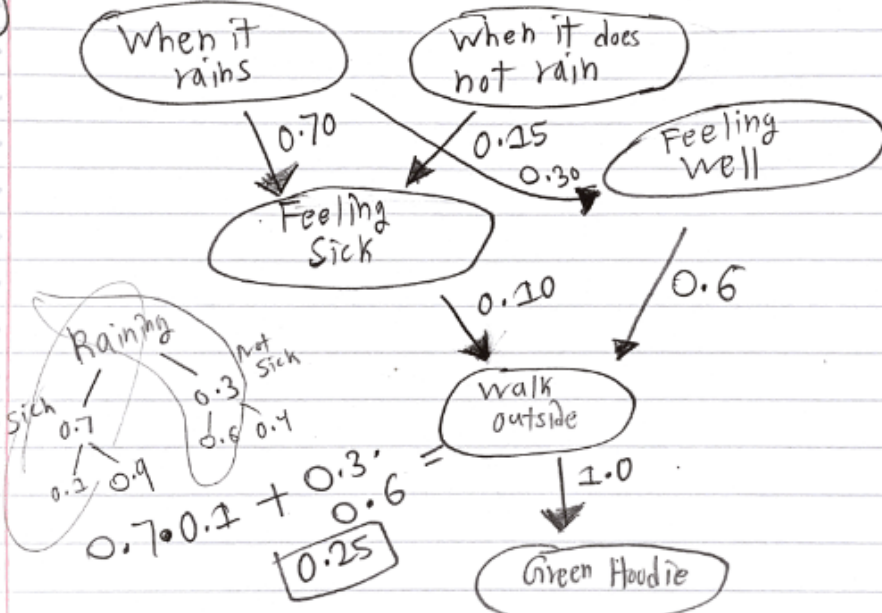 When it
rains
When it does
not rain
0.70
0.15
0.30
Feeling
well
Feeling
Sick
0.10
0.6
Raining
Sick
Not
Sick
0.7
0.3
0.1 0.9
0.6 0.4
0.7·0.1 + 0.3·
0.6
=
0.25
Walk
outside
1.0
Green Hoodie